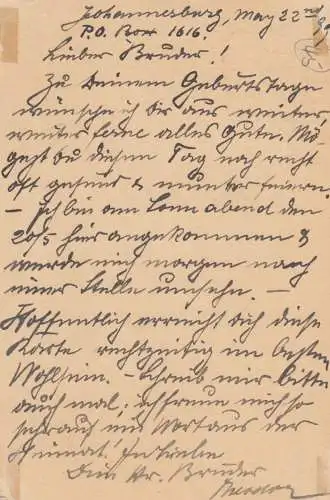 Johannesburg, May 22nd
P.O. Box 1616.
Lieber Bruder!
Zu Deinem Geburtstage
wünsche ich dir aus weiter,
weiter Ferne alles Gute. Mö-
gest du diesen Tag noch recht
oft gesund & munter feiern.
– Ich bin am Sonnabend den
20/5 hier angekommen &
werde mich morgen nach
einer Stelle umsehn. –
Hoffentlich erreicht dich diese
Karte rechtzeitig im besten
Wohlsein. – Schreib mir bitte
auch mal, ich freue mich so
sehr auch ein Wort aus der
Heimat! In Liebe
Dein Br. Bruder